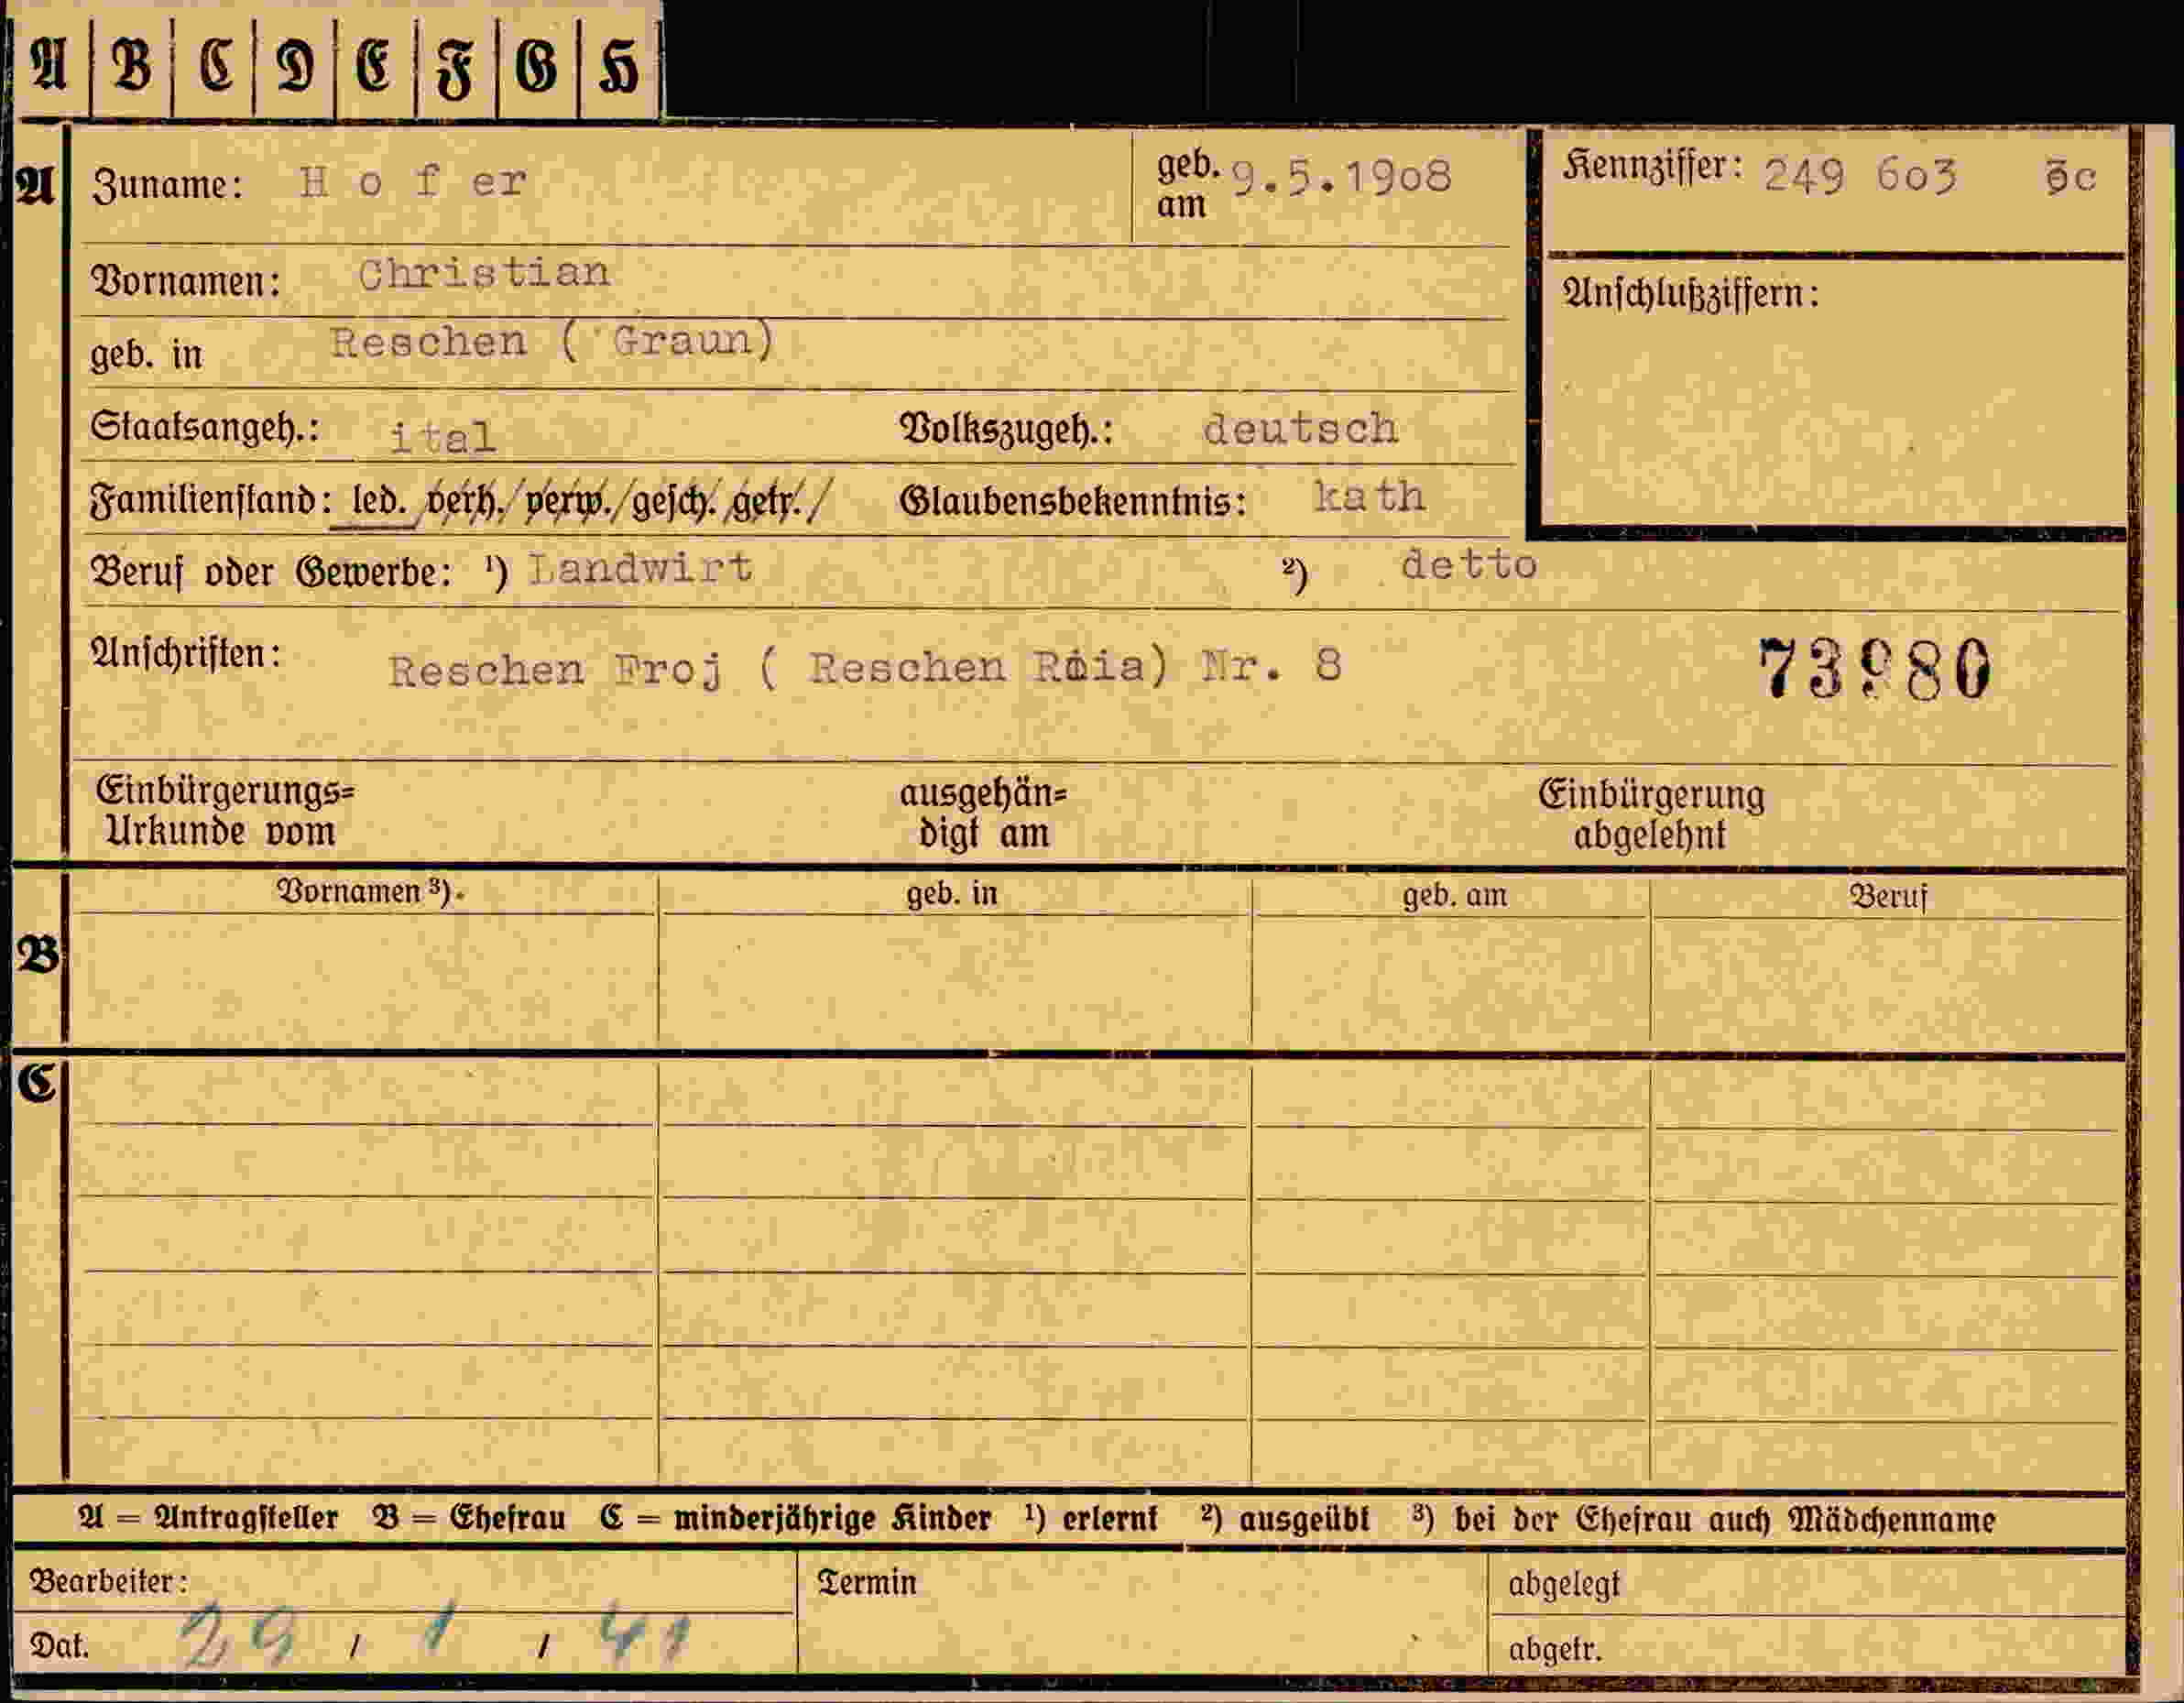 A B C D E F G H
A Zuname: Hofer geb. am 9.5.1908 Kennziffer: 249 603 3c
Vornamen: Christian Anschlußziffern:
geb. in Reschen ( Graun)
Staatsangeh.: ital Volkszugeh.: deutsch
Familienstand: led. verh./verw./gesch./getr./ Glaubensbekenntnis: kath
Beruf oder Gewerbe: ¹) Landwirt ²) detto
Anschriften: Reschen Froj ( Reschen Roia) Nr. 8 73980
Einbürgerungs= ausgehän= Einbürgerung
Urkunde vom digt am abgelehnt
Vornamen ³). geb. in geb. am Beruf
B
C
A = Antragsteller B = Ehefrau C = minderjährige Kinder ¹) erlernt ²) ausgeübt ³) bei der Ehefrau auch Mädchenname
Bearbeiter: Termin abgelegt
Dat. 29 / 1 / 41 abgetr.